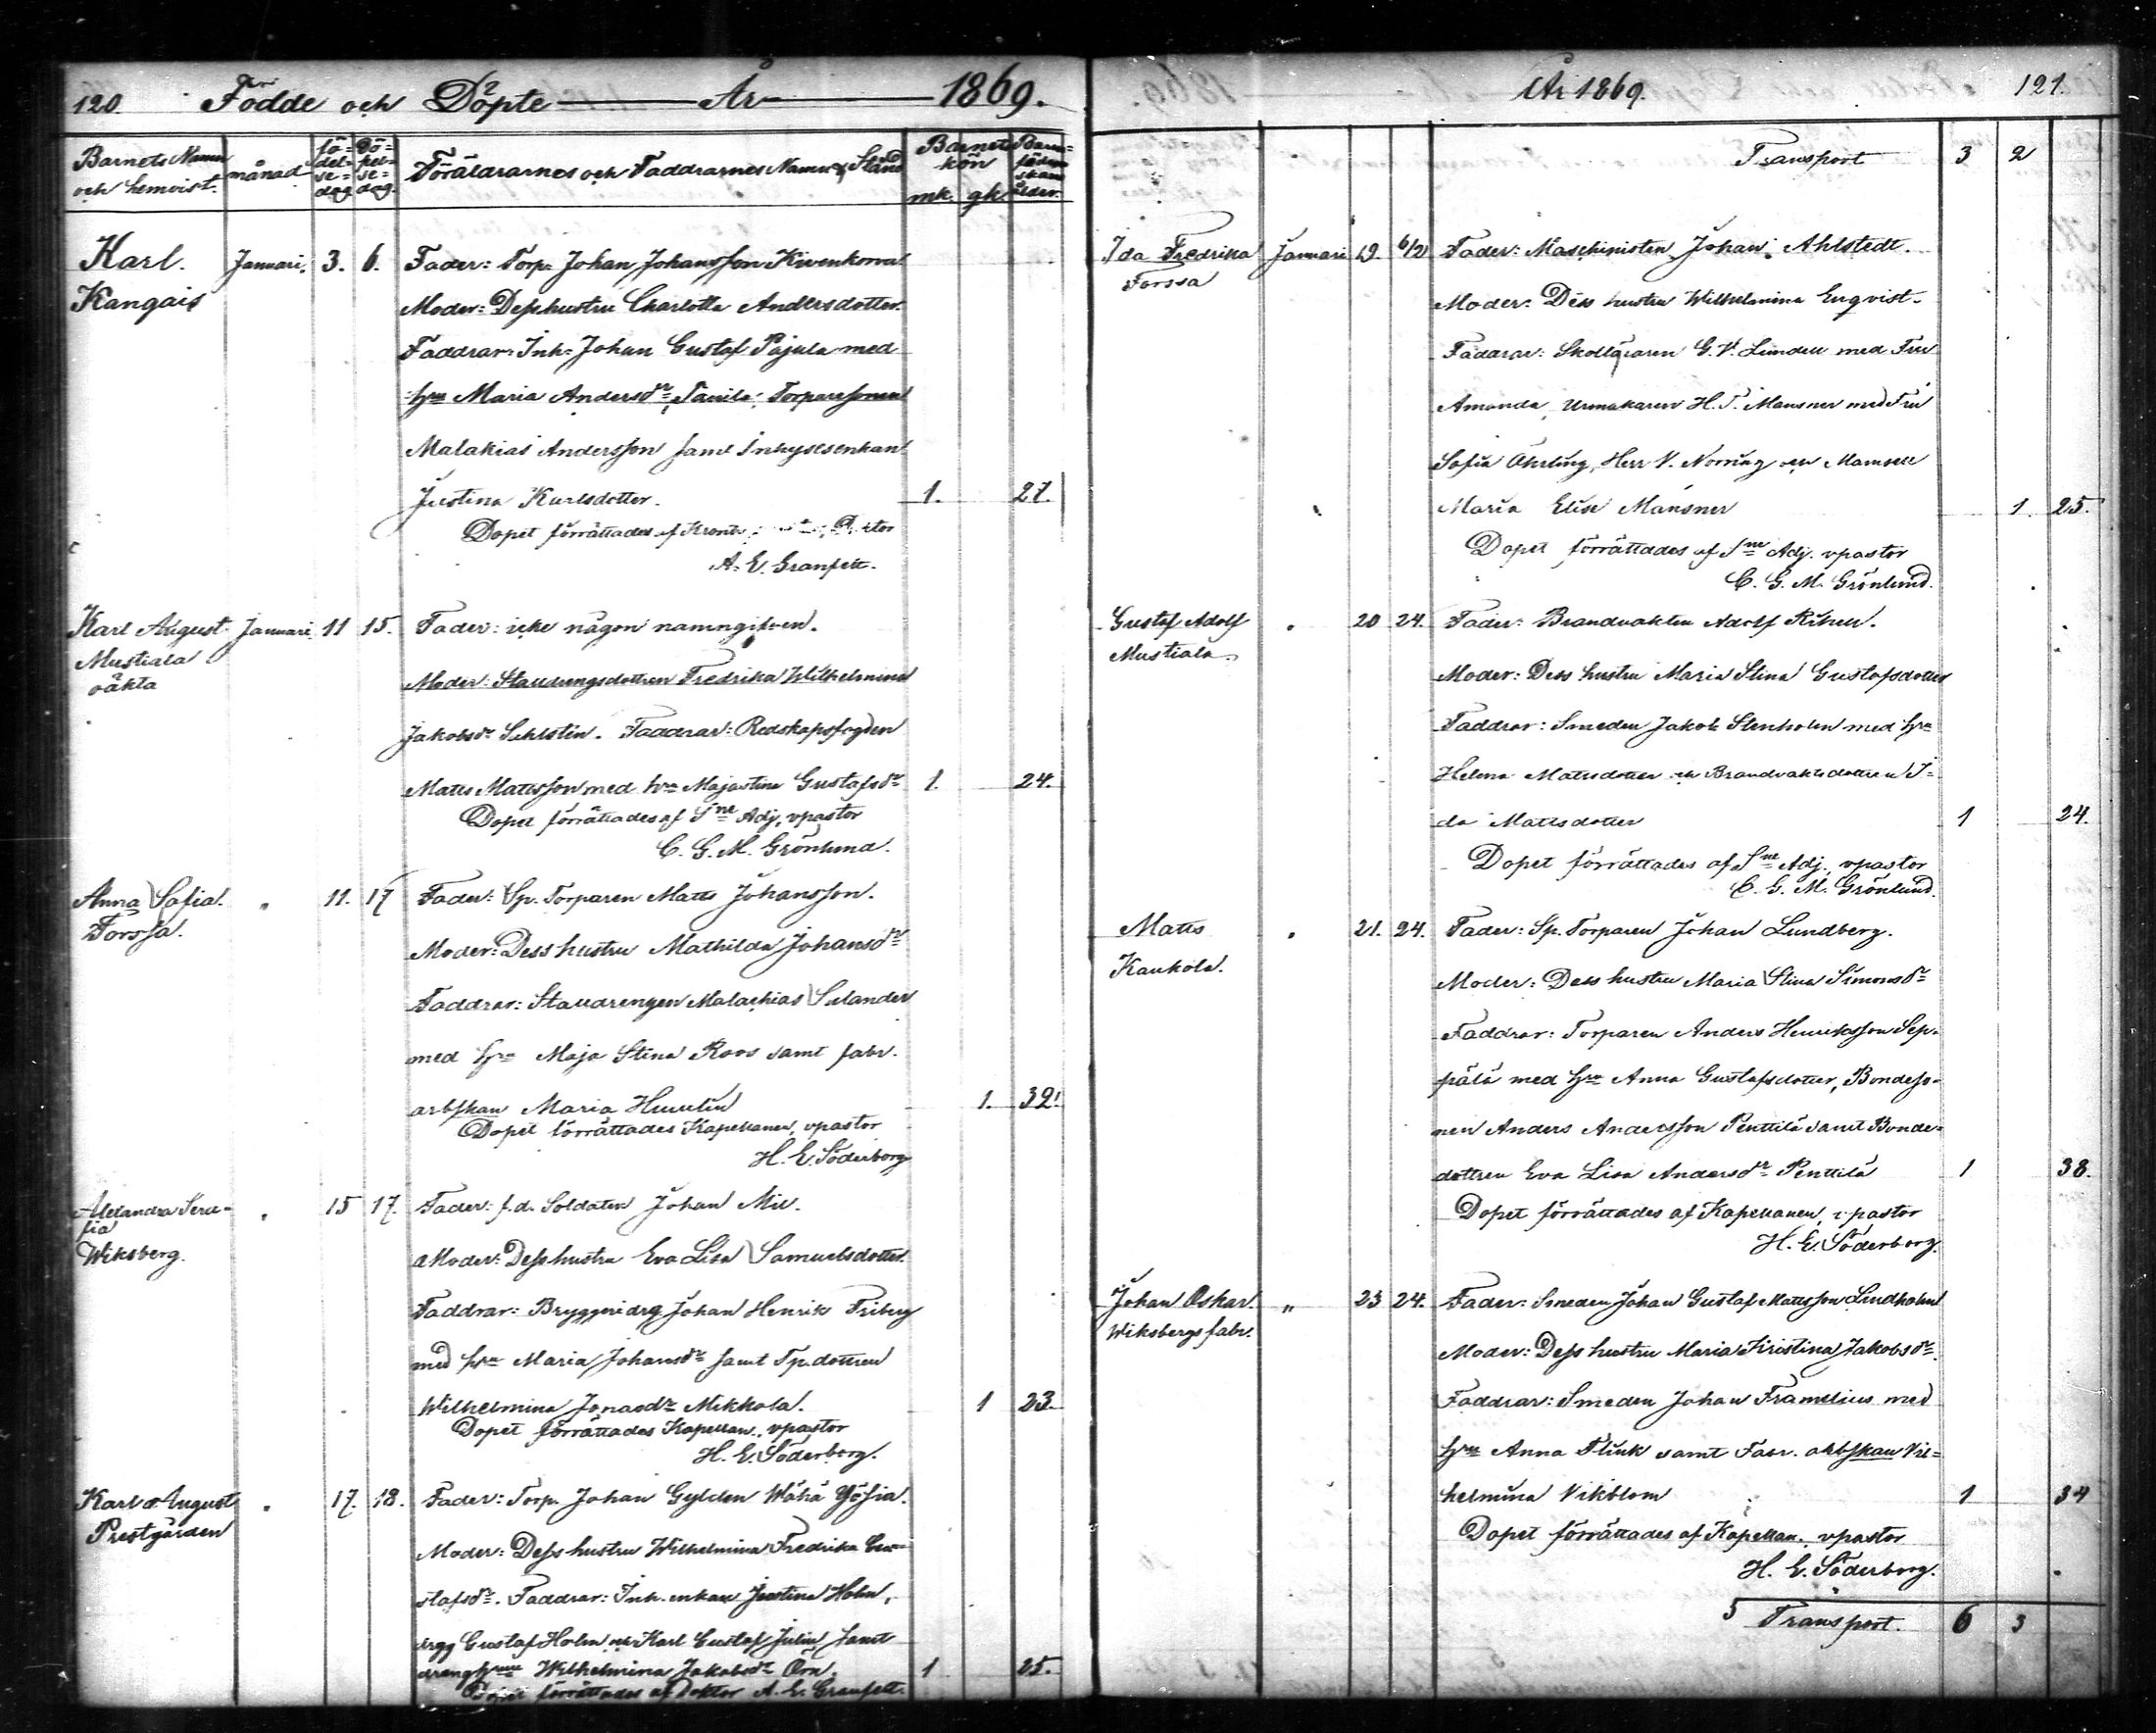 120. Födde och Döpte År 1869.
Barnets Namn och hemvist. månad fö-del-se-dag Dö-pel-se-dag. Föräldrarnes och Faddrarnes Namn & Stånd Barnets kön mk. gk. ålder.
Karl. Januari. 3. 6. Fader: Torp. Johan Johansson Kivenkorva
Kangais Moder: Dess hustru Charlotta Andersdotter.
Faddrar: Inh: Johan Gustaf Pajula med
hru Maria Andersdr Tanila, Torparesonen
Malakias Andersson samt Inhysesenkan
Justina Karlsdotter. 1. 27.
Dopet förrättades af
A. E. Granfelt.
Karl August Januari 11 15. Fader: icke någon namngifven.
Mustiala Moder: Stalldrengsdottren Fredrika Wilhelmina
Jakobsdr Sahlstén. Faddrar: Redskapsfogden
Matts Mattsson med hru Majastina Gustafsdr 1. 24.
Dopet förrättades af Sne Adj. vpastor
C. G. M. Grönlund.
Anna Sofia. " 11. 17 Fader: Sp. Torparen Matts Johansson.
Forssa. Moder: Dess hustru Mathilda Johansdr
Faddrar: Stalldrengen Malachias Selander
med hru Maja Stina Roos samt fabr.
arbskan Maria 1. 32.
Dopet förrättades Kapellanen, vpastor
H. E. Söderborg
Alexandra Sera-fia " 15 17. Fader: f.d. Soldaten Johan Mil.
Wiksberg. Moder: Dess hustru Eva Lisa Samuelsdotter.
Faddrar: Bryggeridrg Johan Henrik Friberg
med hru Maria Johansdr samt Sp. dottren
Wilhelmina Jonasdr Mikkola. 1 23.
Dopet förrättades Kapellan., vpastor
H. E. Söderborg.
Karl August " 17. 18. Fader: Torp. Johan Gylden Wähä Yösia.
Prestgården Moder: Dess hustru Wilhelmina Fredrika Gu-
stafsdr. Faddrar: Inh. enkan Justina Holm,
drgg Gustaf Holm och Karl Gustaf Julin samt
dreng hrun Wilhelmina Jakobsdr Örn. 1 25.
Dopet förrättades af Doktor A. E. Granfelt.
År 1869. 121.
Transport 3 2
Ida Fredrika Januari 19. 6/2 Fader: Maschinisten Johan Ahlstedt.
Forssa Moder: Dess hustru Wilhelmina Enqvist.
Faddrar: Skolläraren G. V. Lundell med Fru
Amanda, Urmakaren H. T. Mansner med Fru
Sofia Öhrling, Herr V. Norring och Mamsell
Maria Elise Mansner 1 25.
Dopet förrättades af Sne Adj. vpastor
C. G. M. Grönlund.
Gustaf Adolf " 20 24. Fader: Brandvakten Adolf
Mustiala. Moder: Dess hustru Maria Stina Gustafsdotter
Faddrar: Smeden Jakob Stenholm med hru
Helena Mattsdotter och Brandvaktsdottren I-
da Mattsdotter 1 24.
Dopet förrättades af Sne Adj. vpastor
C. G. M. Grönlund.
Matts " 21. 24. Fader: Sp. Torparen Johan Lundberg.
Kaukola. Moder: Dess hustru Maria Stina Simonsdr
Faddrar: Torparen Anders Henriksson Sep-
pälä med hru Anna Gustafsdotter, Bondeso-
nen Anders Andersson Penttilä samt Bonde-
dottren Eva Lisa Andersdr Penttilä 1 38.
Dopet förrättades af Kapellanen, vpastor
H. E. Söderborg.
Johan Oskar. " 23 24. Fader: Smeden Johan Gustaf Mattsson Lindholm
Wiksbergs fabr. Moder: Dess hustru Maria Kristina Jakobsdr.
Faddrar: Smeden Johan Framelius med
hru Anna Flink samt Fabr. arbskan Vil-
helmina Vikblom 1 34
Dopet förrättades af Kapellan., vpastor
H. E. Söderborg.
Transport. 6 3